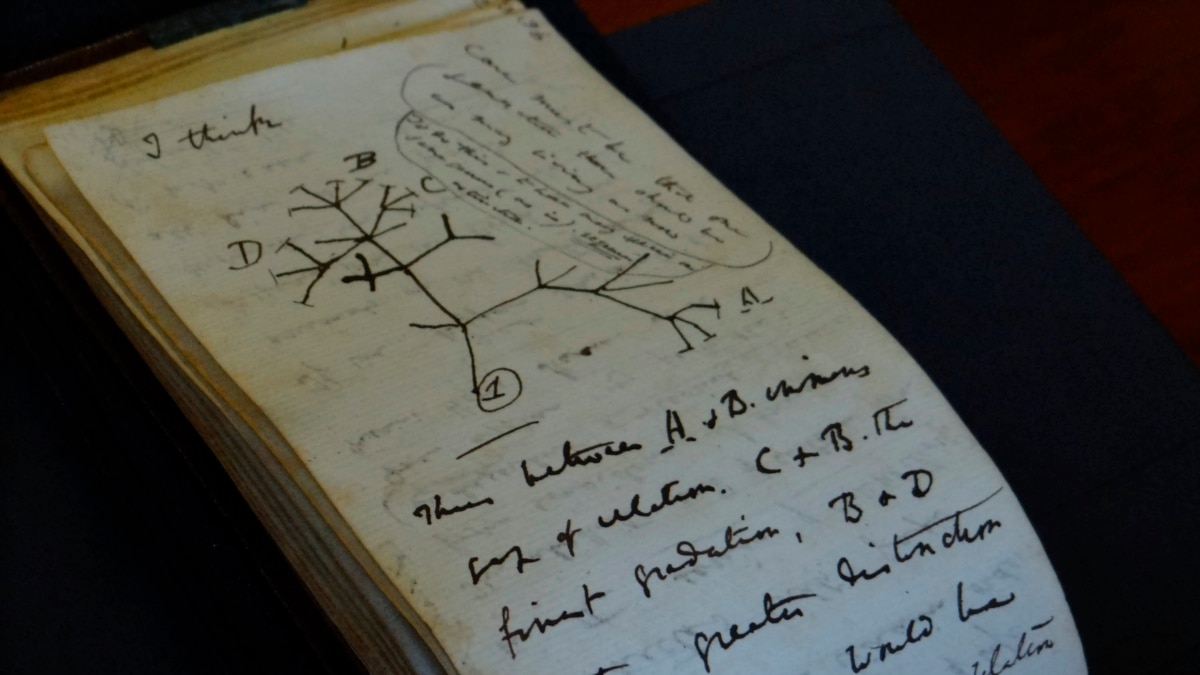 36
I think
Case must be that one
generation then should be
as many living as now
To do this & to have many species in
same genus (as is) requires
extinction.
B
C
D
A
1
Thus between A & B. immens
gap of relation. C & B. the
finest gradation, B & D
greater distinction
would be
relation